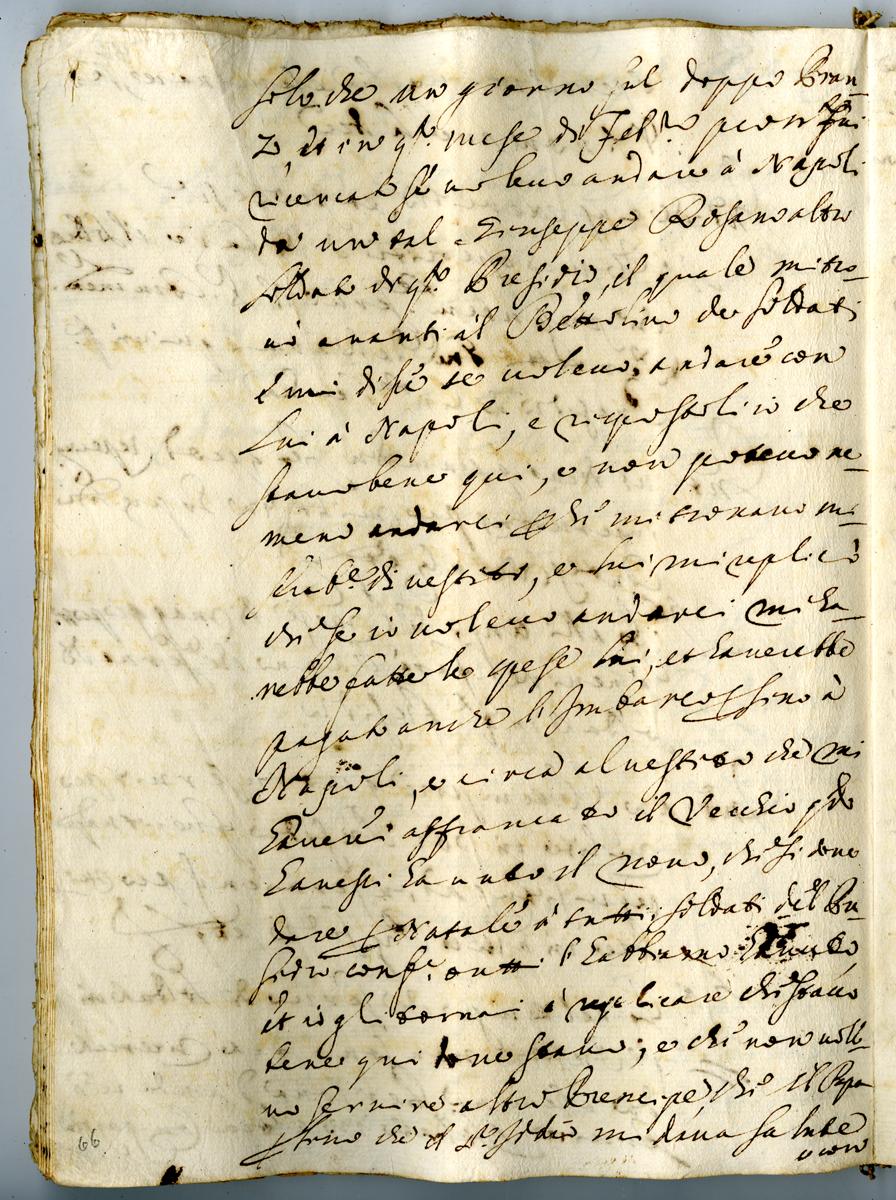 solo che un giorno sul doppo Pran-
zo, et in q.to mese di Feb.ro pcon fui
ricercato se volevo andare à Napoli
da un tal Giuseppe Rosano altro
soldato di q.to Presidio, il quale mi tro-
vò avanti il Bettolino de soldati
e mi disse se volevo andare con
lui à Napoli, e risposi li io che
stavo bene qui, e non potevo ne-
meno andarci p che mi trovavo
di vestito, e lui mi replicò
che se io volevo andarci mi ha-
rebbe fatto le spese lui, et haverebbe
pagato anche l'Imbarco sino à
Napoli, e circa al vestito che mi
haverei affrancato il Vecchio q.do
havessi havuto il novo, che si deve
dare p Natale à tutti i soldati del Pre-
sidio conf.e tutti l'habbiamo havuto
et io gli tornai à replicare che stavo
bene qui dove stavo, e che non vole-
vo servire altro Prencipe, che il Papa
sino che il S.r Iddio mi dava salute
, e con
66